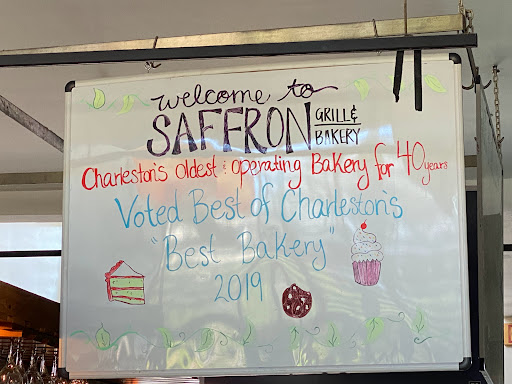 & welcome to
SAFFRON GRILL &
BAKERY
Charleston's oldest & operating Bakery for 40 years
Voted Best of Charleston's
"Best Bakery"
2019